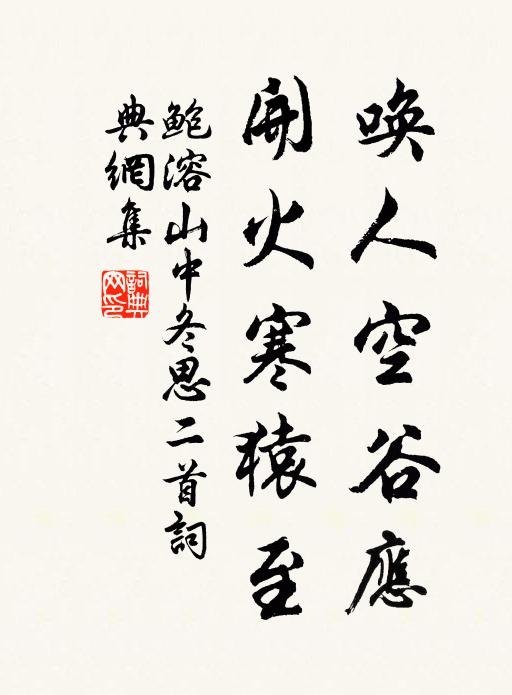 喚人空谷應
開火寒猿至
鮑溶山中冬思二首詞
典網集
詞典網印